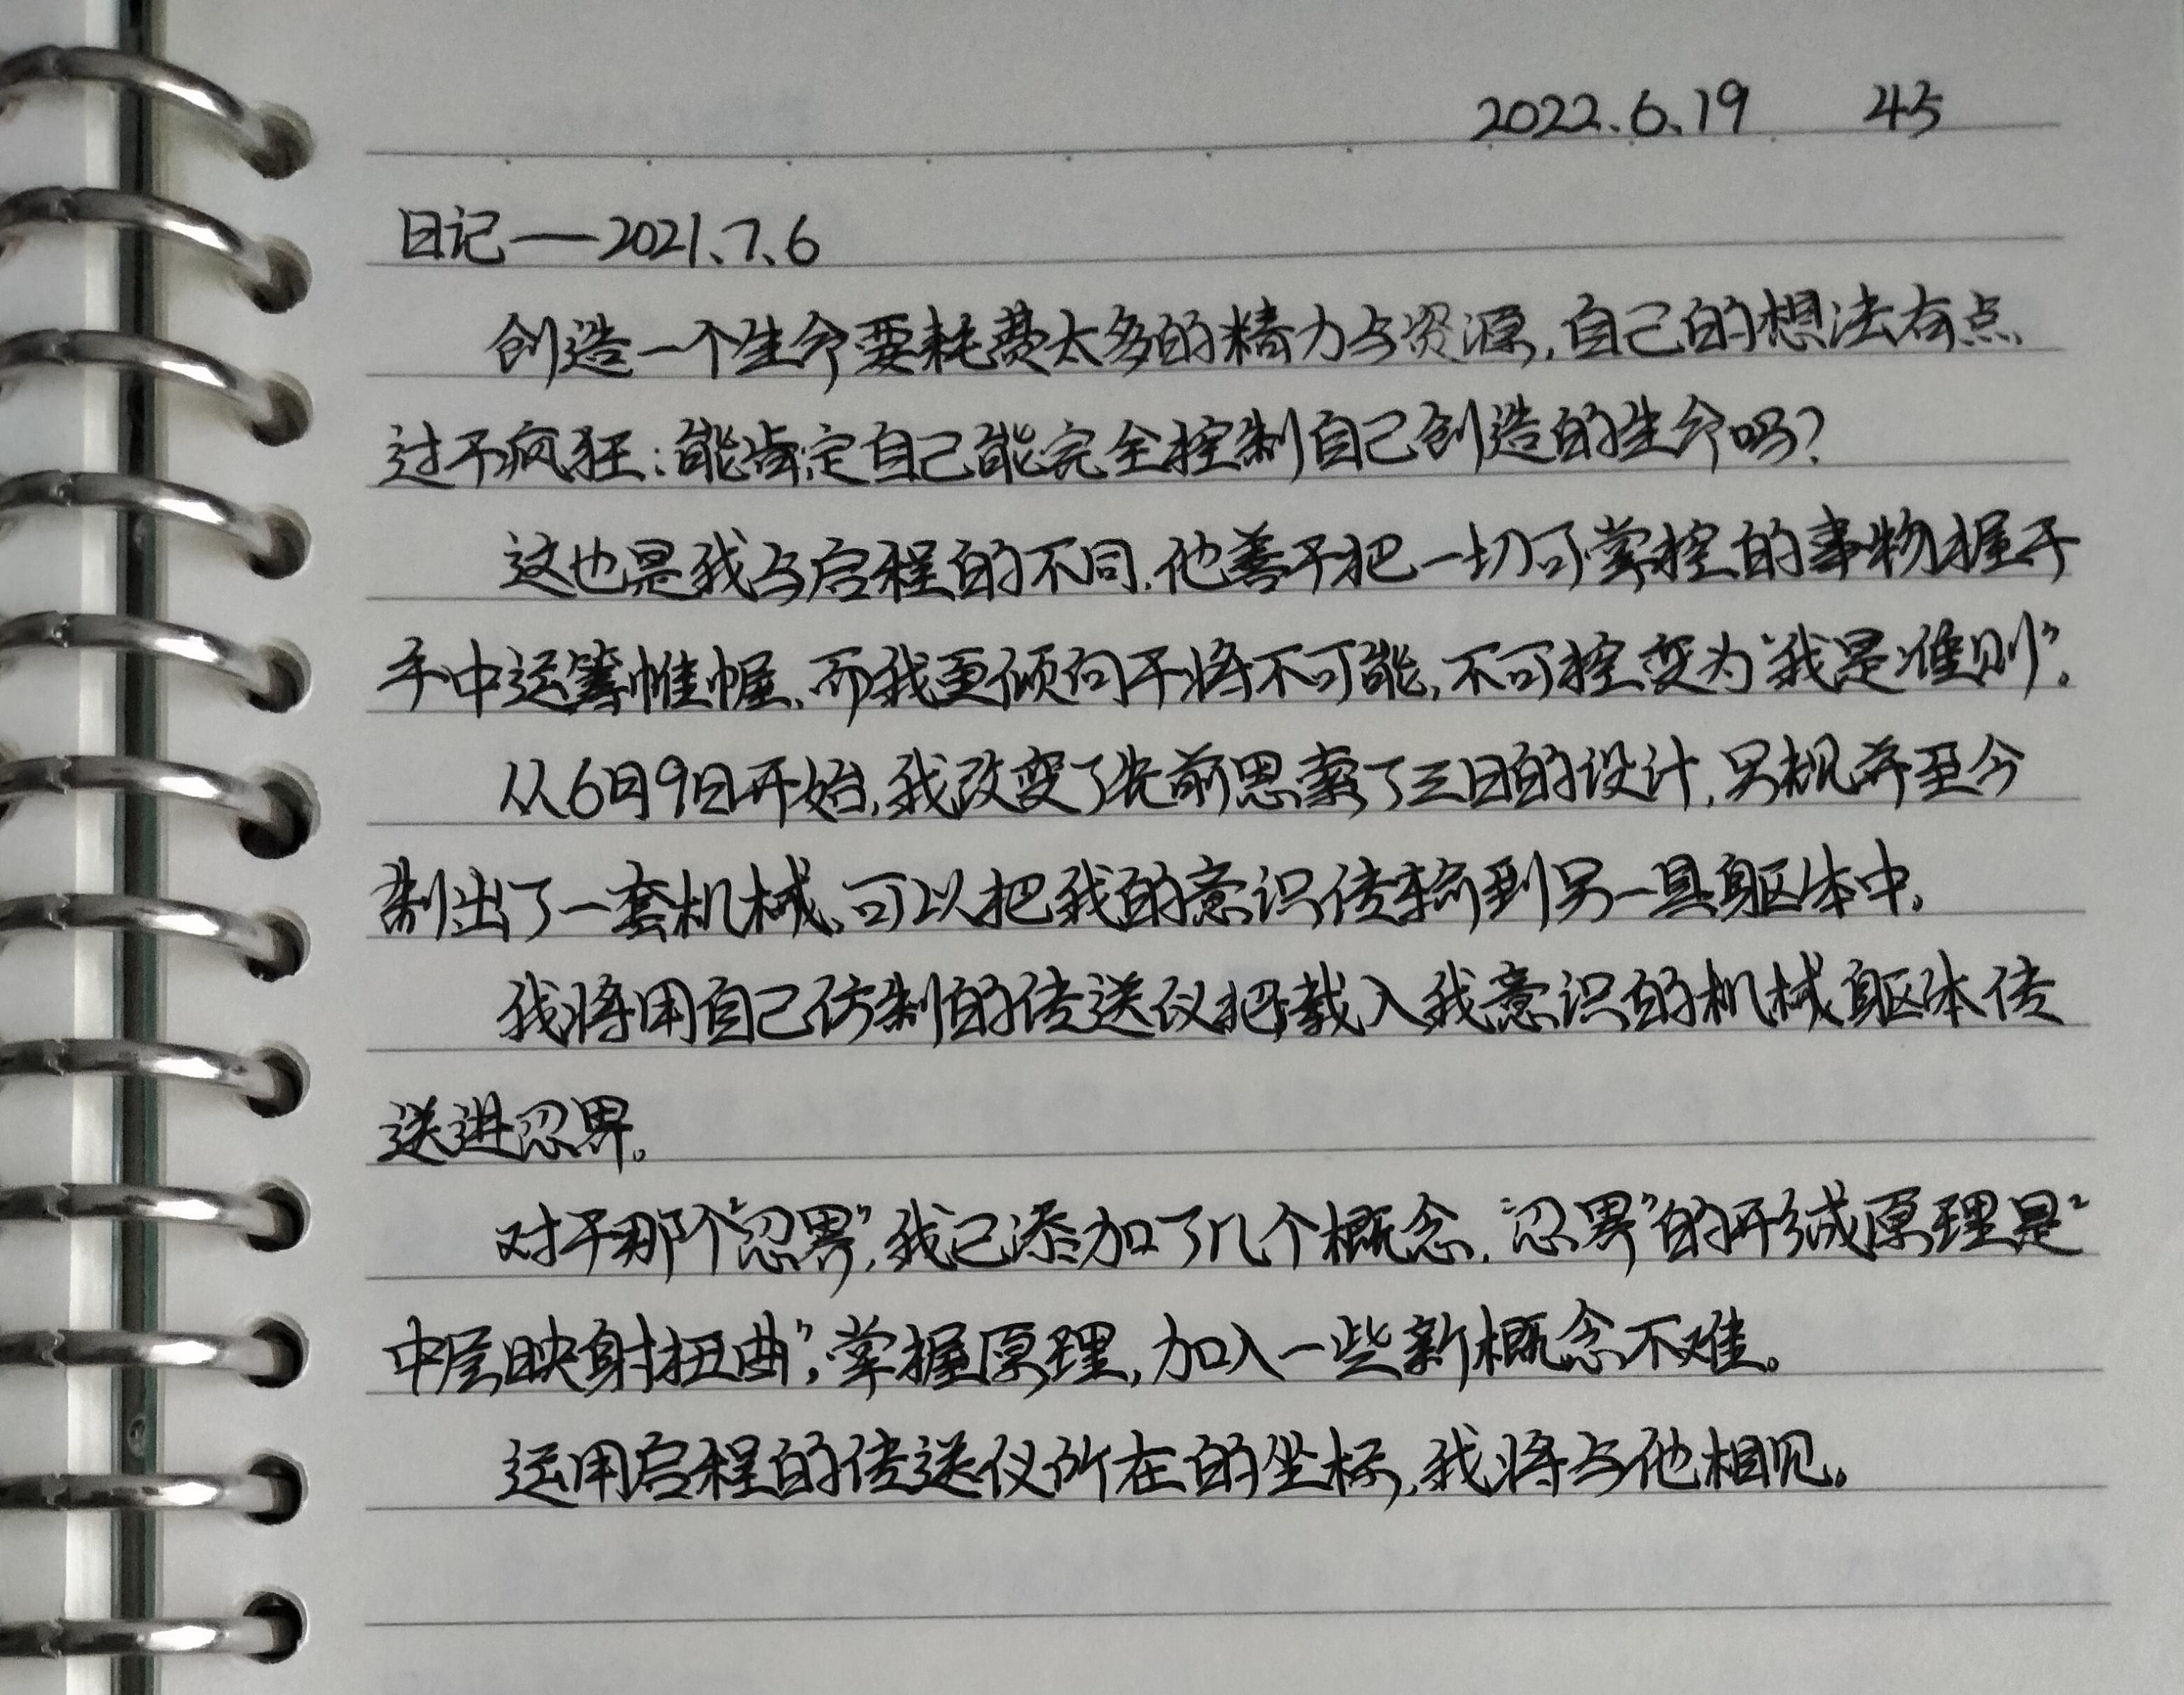 2022.6.19 45
日记——2021.7.6
创造一个生命要耗费太多的精力与资源,自己的想法有点
过于疯狂:能肯定自己能完全控制自己创造的生命吗?
这也是我与启程的不同.他善于把一切可掌控的事物握于
手中运筹帷幄、而我更倾向于将不可能,不可控变为“我是准则”。
从6月9日开始,我改变了先前思索了三日的设计,另机并至今
制出了一套机械、可以把我的意识传输到另一具躯体中.
我将用自己仿制的传送仪把载入我意识的机械躯体传
送进忍界。
对于那个“忍界”,我已添加了几个概念.“忍界”的形成原理是“
中层映射扭曲”,掌握原理,加入一些新概念不难。
运用启程的传送仪所在的坐标,我将与他相见。